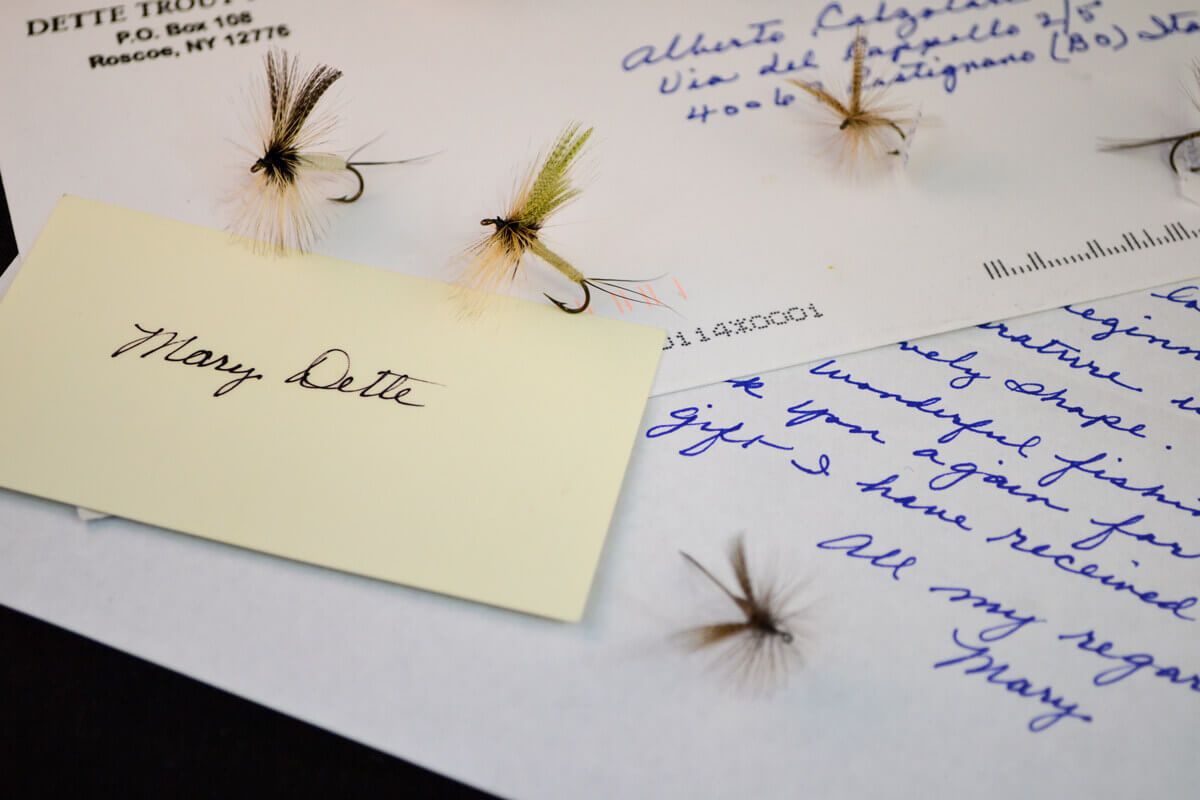 DETTE TROUT
P.O. Box 108
Roscoe, NY 12776
Alberto Calzolari
Via del Pappello 2/5
4006 Castignano (BO) Ita
0114*0001
Mary Dette
beginn
erature
vely shape.
k you again for
wonderful fishin
gift I have received
All my regar
Mary